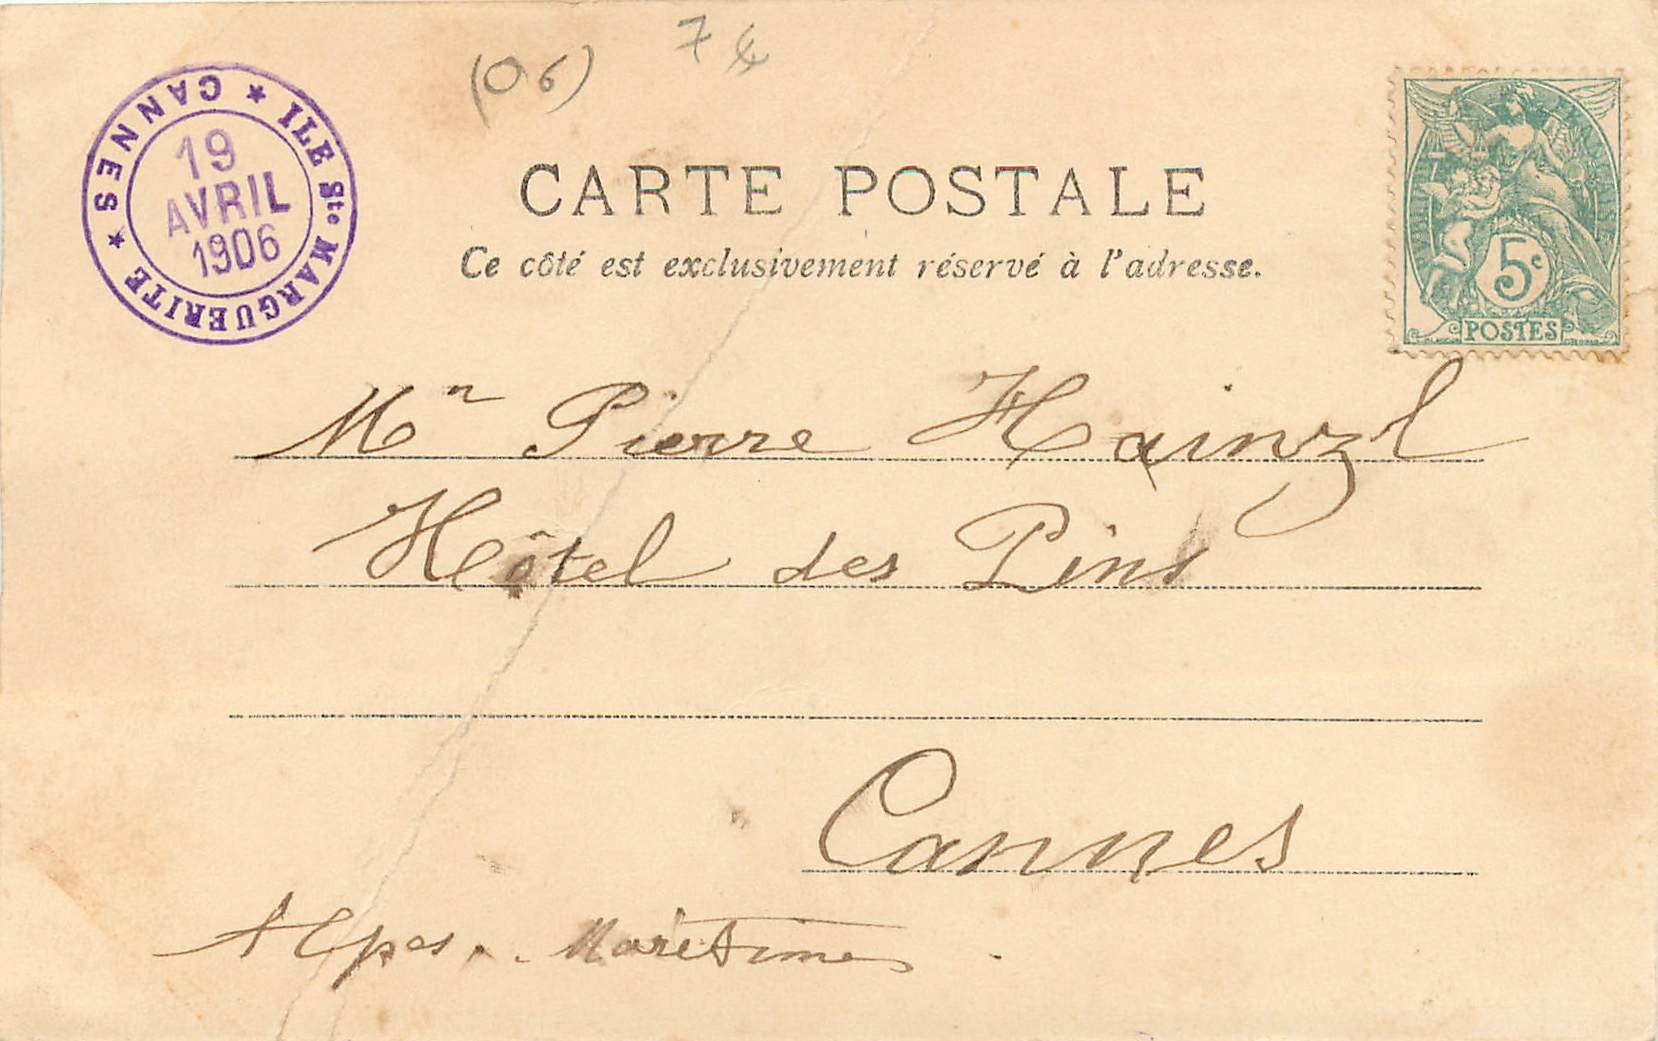 (06) 7€
CANNES * ILE Ste MARGUERITE *
19
AVRIL
1906
CARTE POSTALE
Ce côté est exclusivement réservé à l'adresse.
5c
POSTES
Mr Pierre Hainzl
Hôtel des Pins
Cannes
Alpes-Maritimes.